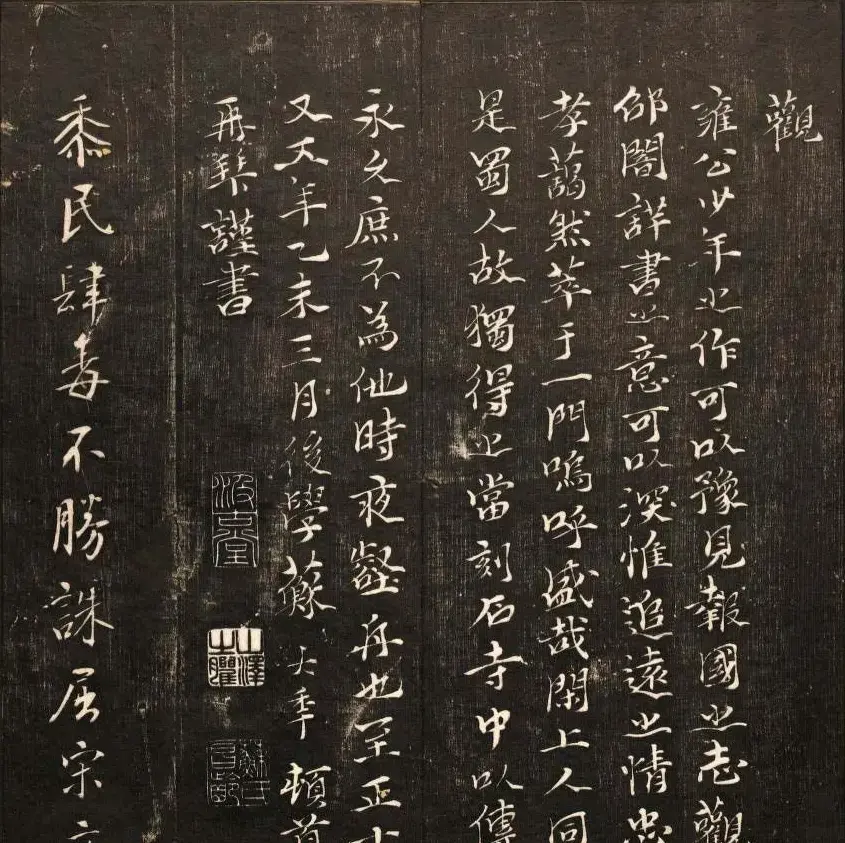 觀
雍公少年之作可以豫見報國之志觀
邵闇詳書之意可以深惟追遠之情忠
孝藹然萃于一門嗚呼盛哉閑上人同
是蜀人故獨得之當刻石寺中以傳
永久庶不為他時夜壑舟也至正十
又五年乙未三月後學蘇大年頓首
再拜謹書
山澤之臞
蘇氏昌齡
黍民肆毒不勝誅屈宋